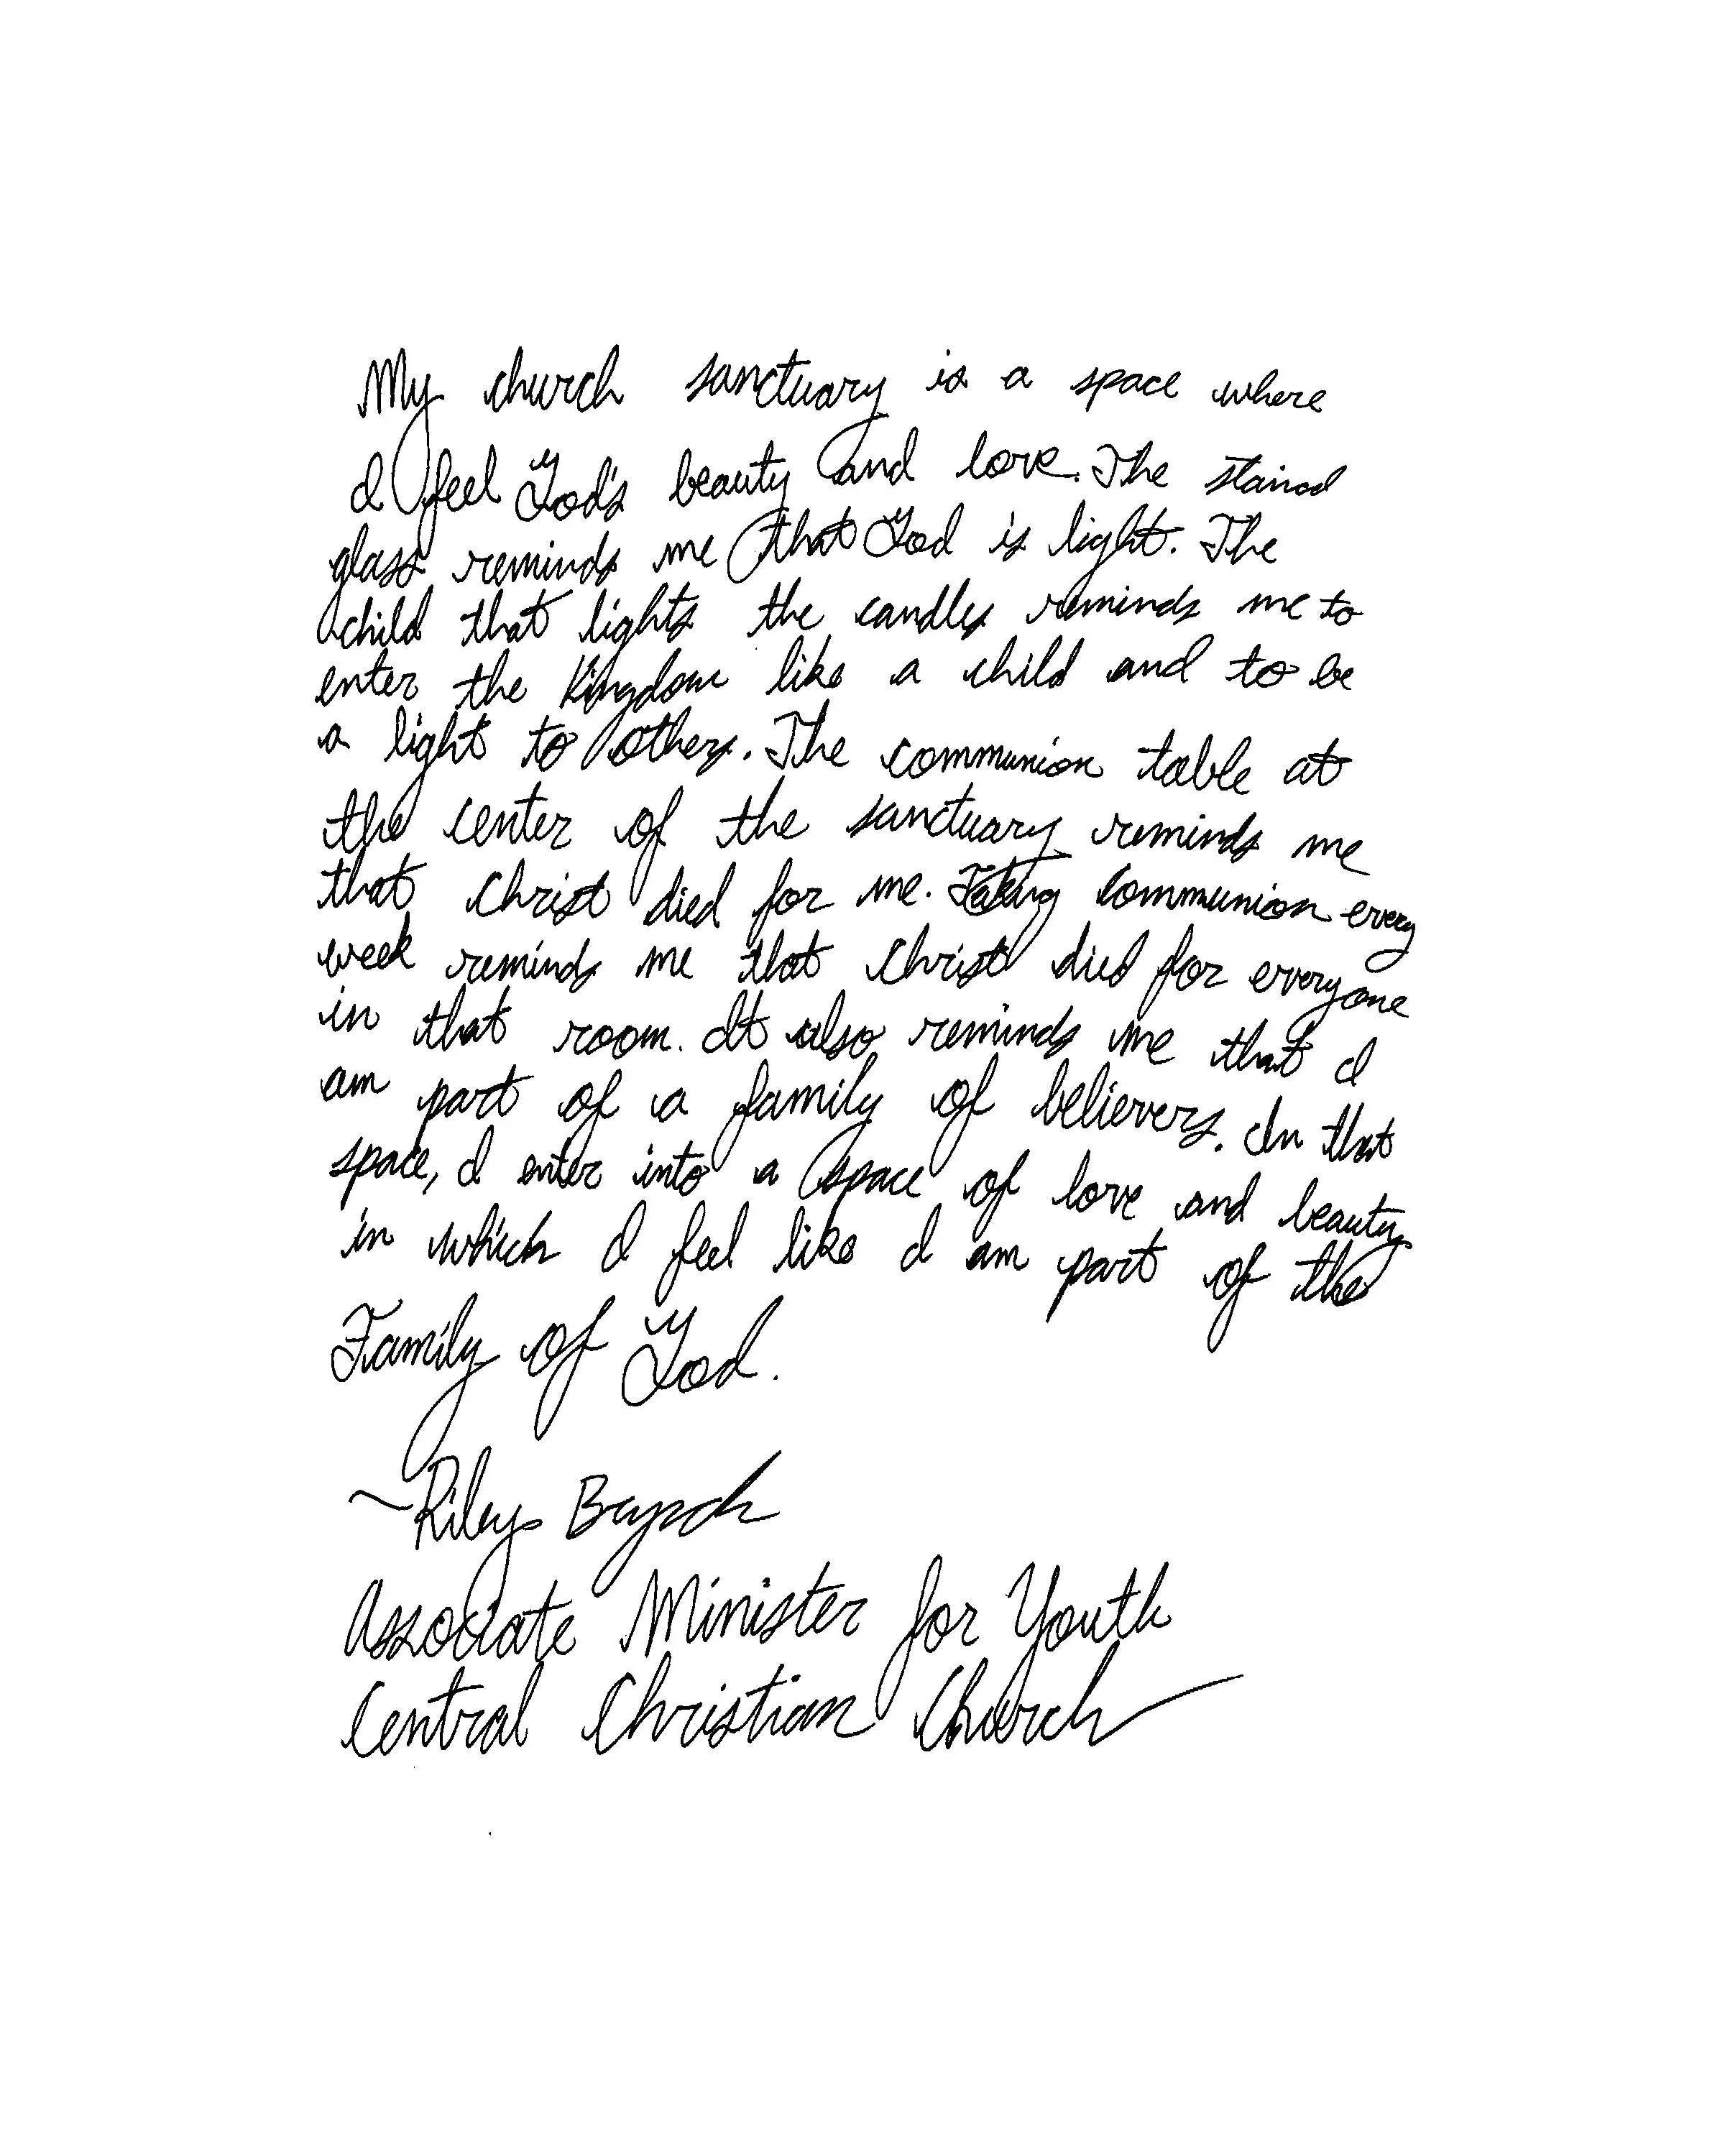 My church sanctuary is a space where
I feel God's beauty and love. The stained
glass reminds me that God is light. The
child that lights the candles reminds me to
enter the Kingdom like a child and to be
a light to others. The communion table at
the center of the sanctuary reminds me
that Christ died for me. Taking communion every
week reminds me that Christ died for everyone
in that room. It also reminds me that I
am part of a family of believers. In that
space, I enter into a space of love and beauty
in which I feel like I am part of the
Family of God.
~Riley
Associate Minister for Youth
Central Christian Church